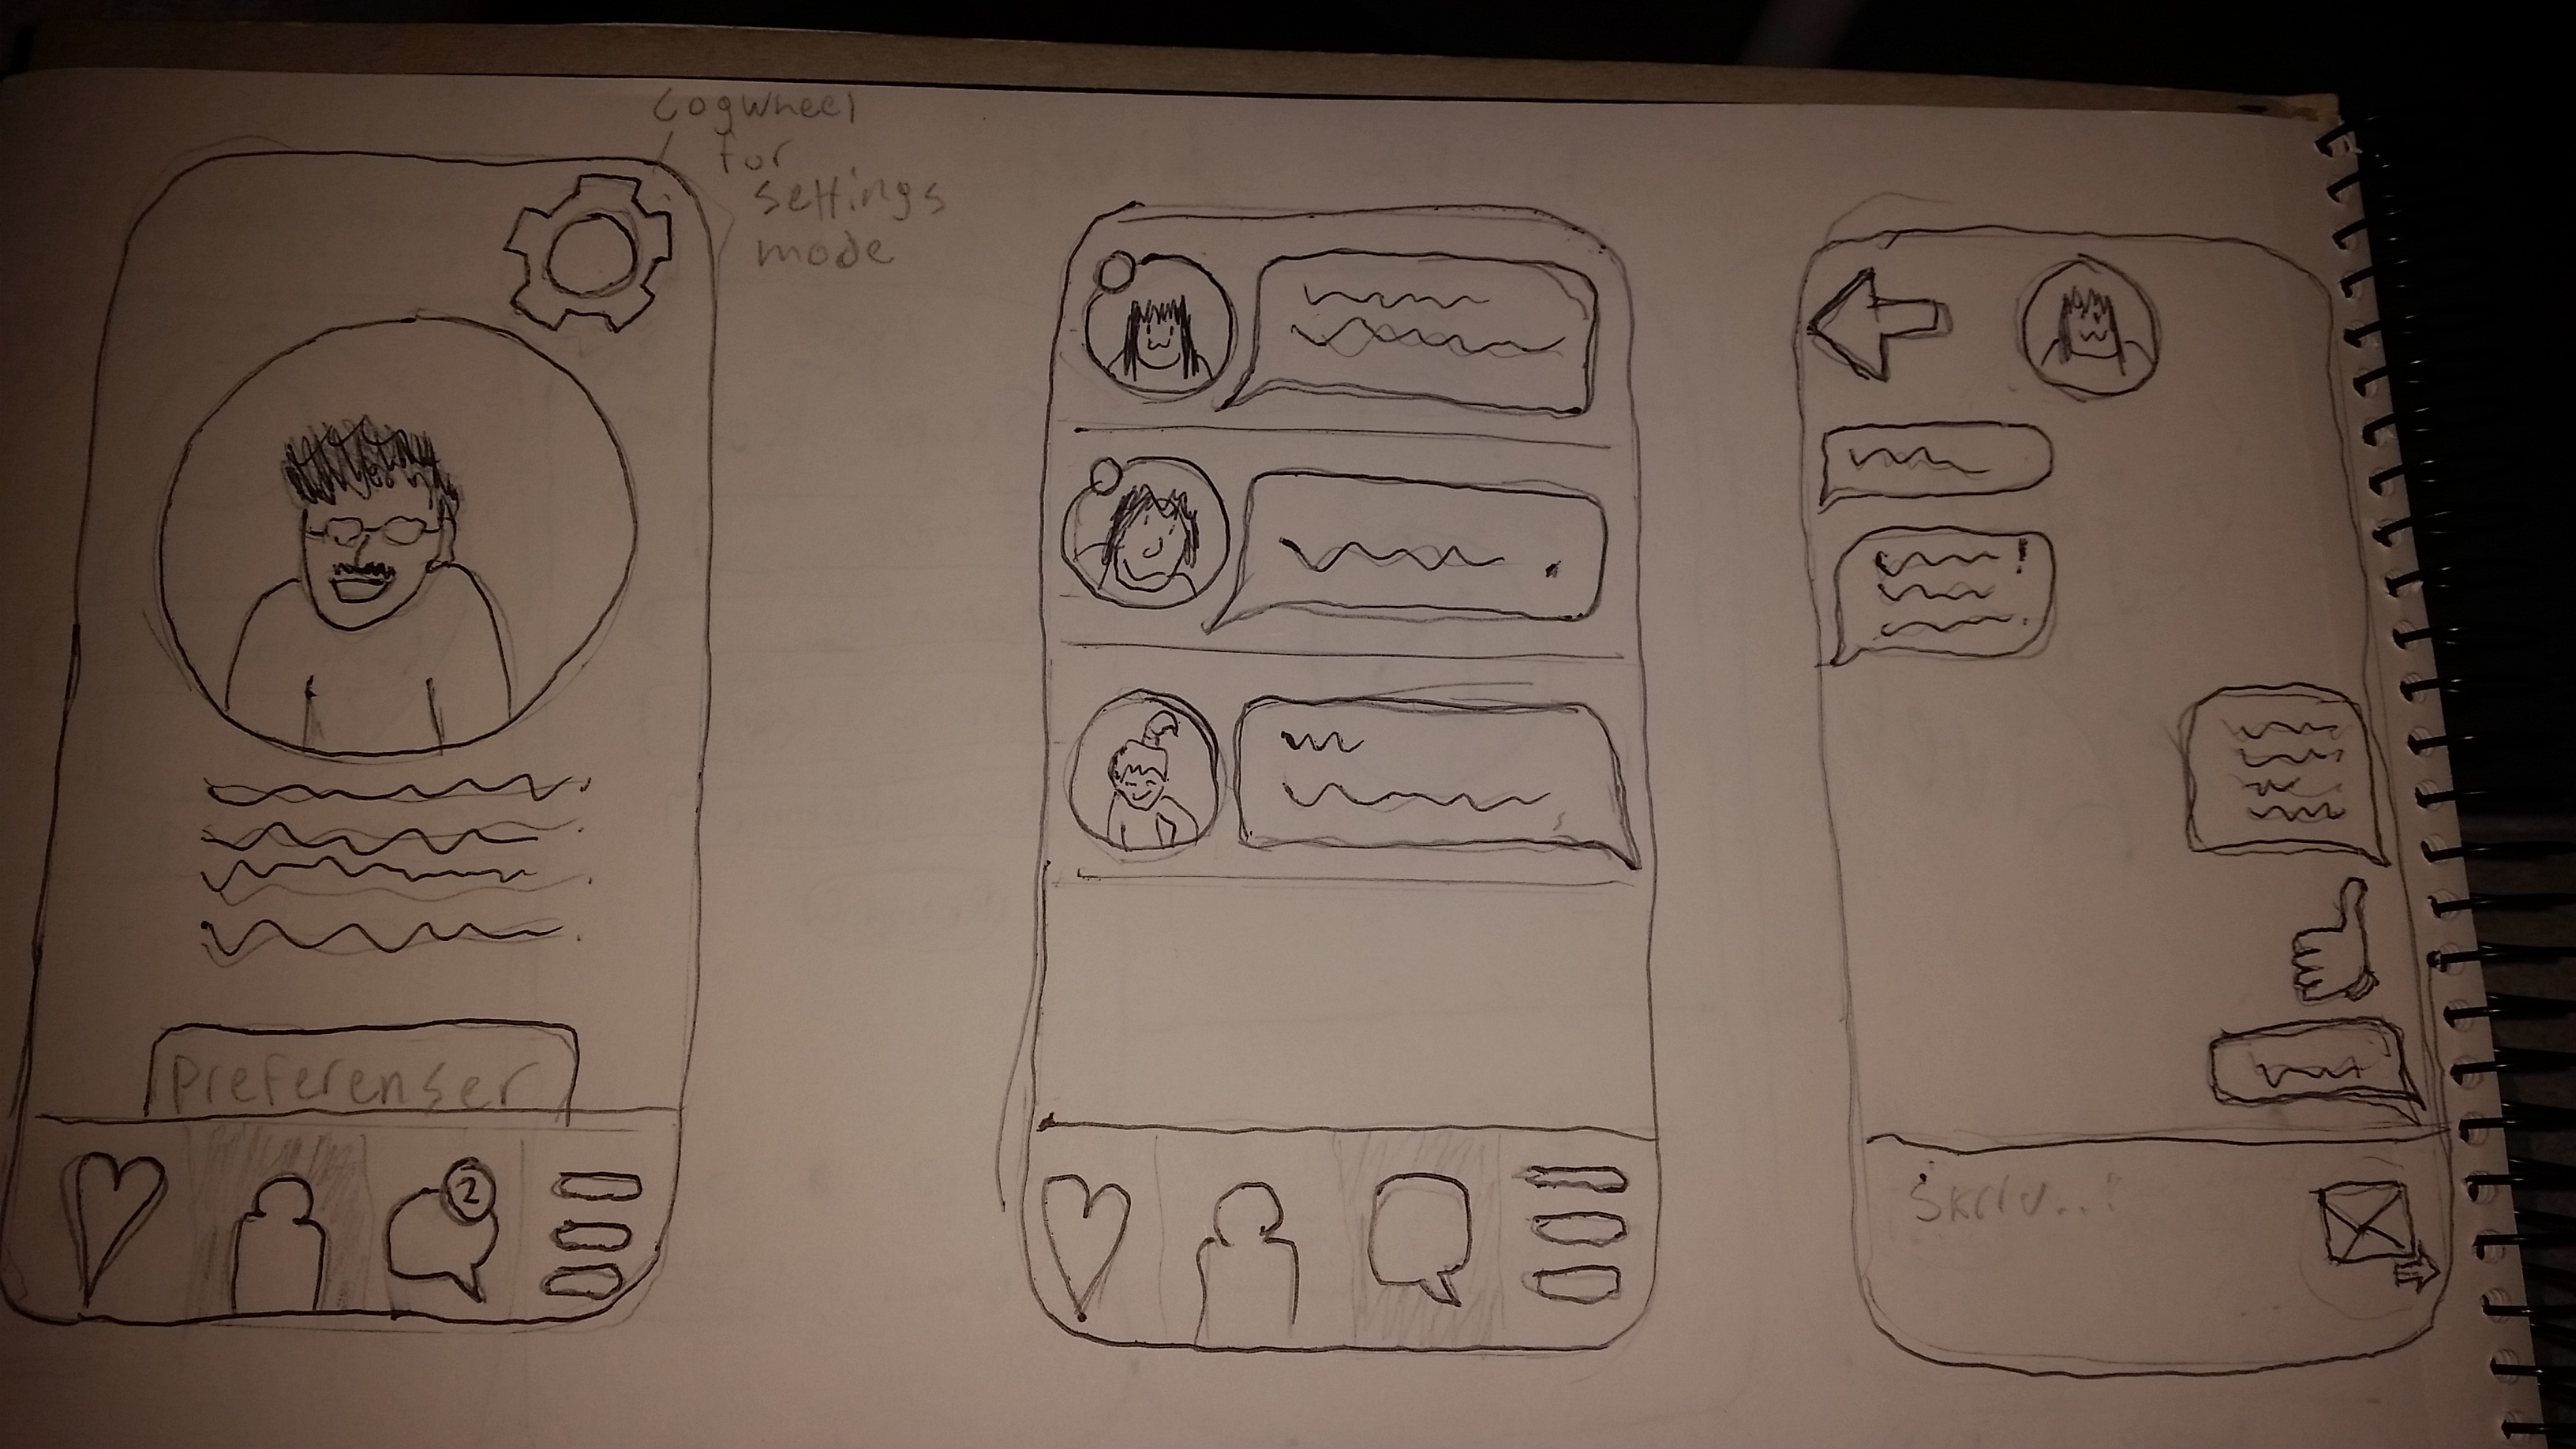 Cogwheel
for
settings
mode
Preferenser
2
Skriv...